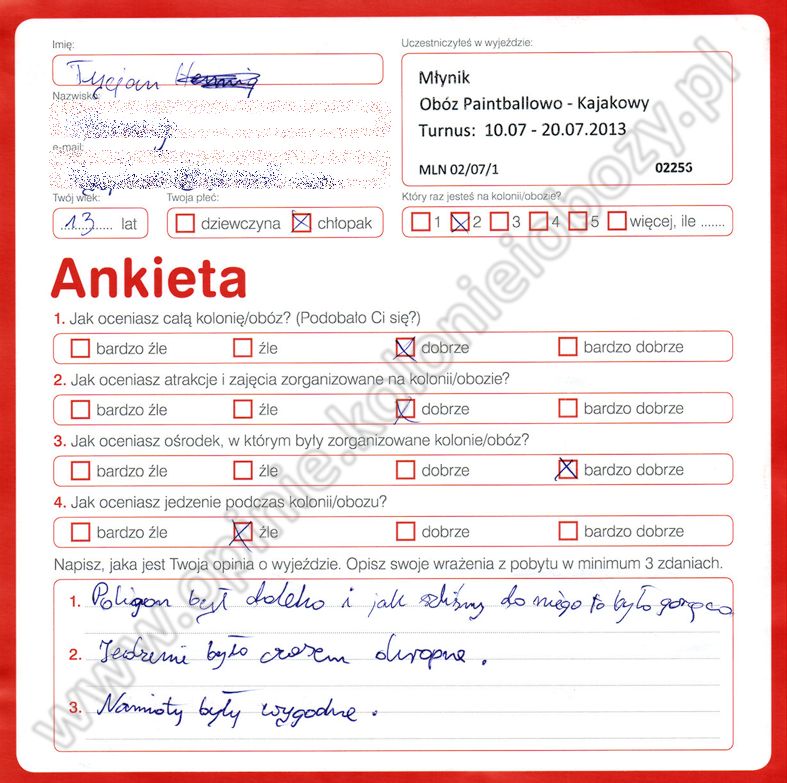 Imię:
Tycjan
Nazwisko:
e-mail:
Twój wiek:
13 lat
Twoja płeć:
dziewczyna chłopak
Uczestniczyłeś w wyjeździe:
Młynik
Obóz Paintballowo - Kajakowy
Turnus: 10.07 - 20.07.2013
MLN 02/07/1 02256
Który raz jesteś na kolonii/obozie?
1 2 3 4 5 więcej, ile .......
Ankieta
1. Jak oceniasz całą kolonię/obóz? (Podobało Ci się?)
bardzo źle źle dobrze bardzo dobrze
2. Jak oceniasz atrakcje i zajęcia zorganizowane na kolonii/obozie?
bardzo źle źle dobrze bardzo dobrze
3. Jak oceniasz ośrodek, w którym były zorganizowane kolonie/obóz?
bardzo źle źle dobrze bardzo dobrze
4. Jak oceniasz jedzenie podczas kolonii/obozu?
bardzo źle źle dobrze bardzo dobrze
Napisz, jaka jest Twoja opinia o wyjeździe. Opisz swoje wrażenia z pobytu w minimum 3 zdaniach.
1. Poligon był daleko i jak szliśmy do niego to było gorąco
2. Jedzenie było czasem okropne.
3. Namioty były wygodne.
www.opinie.kolonieiobozy.pl